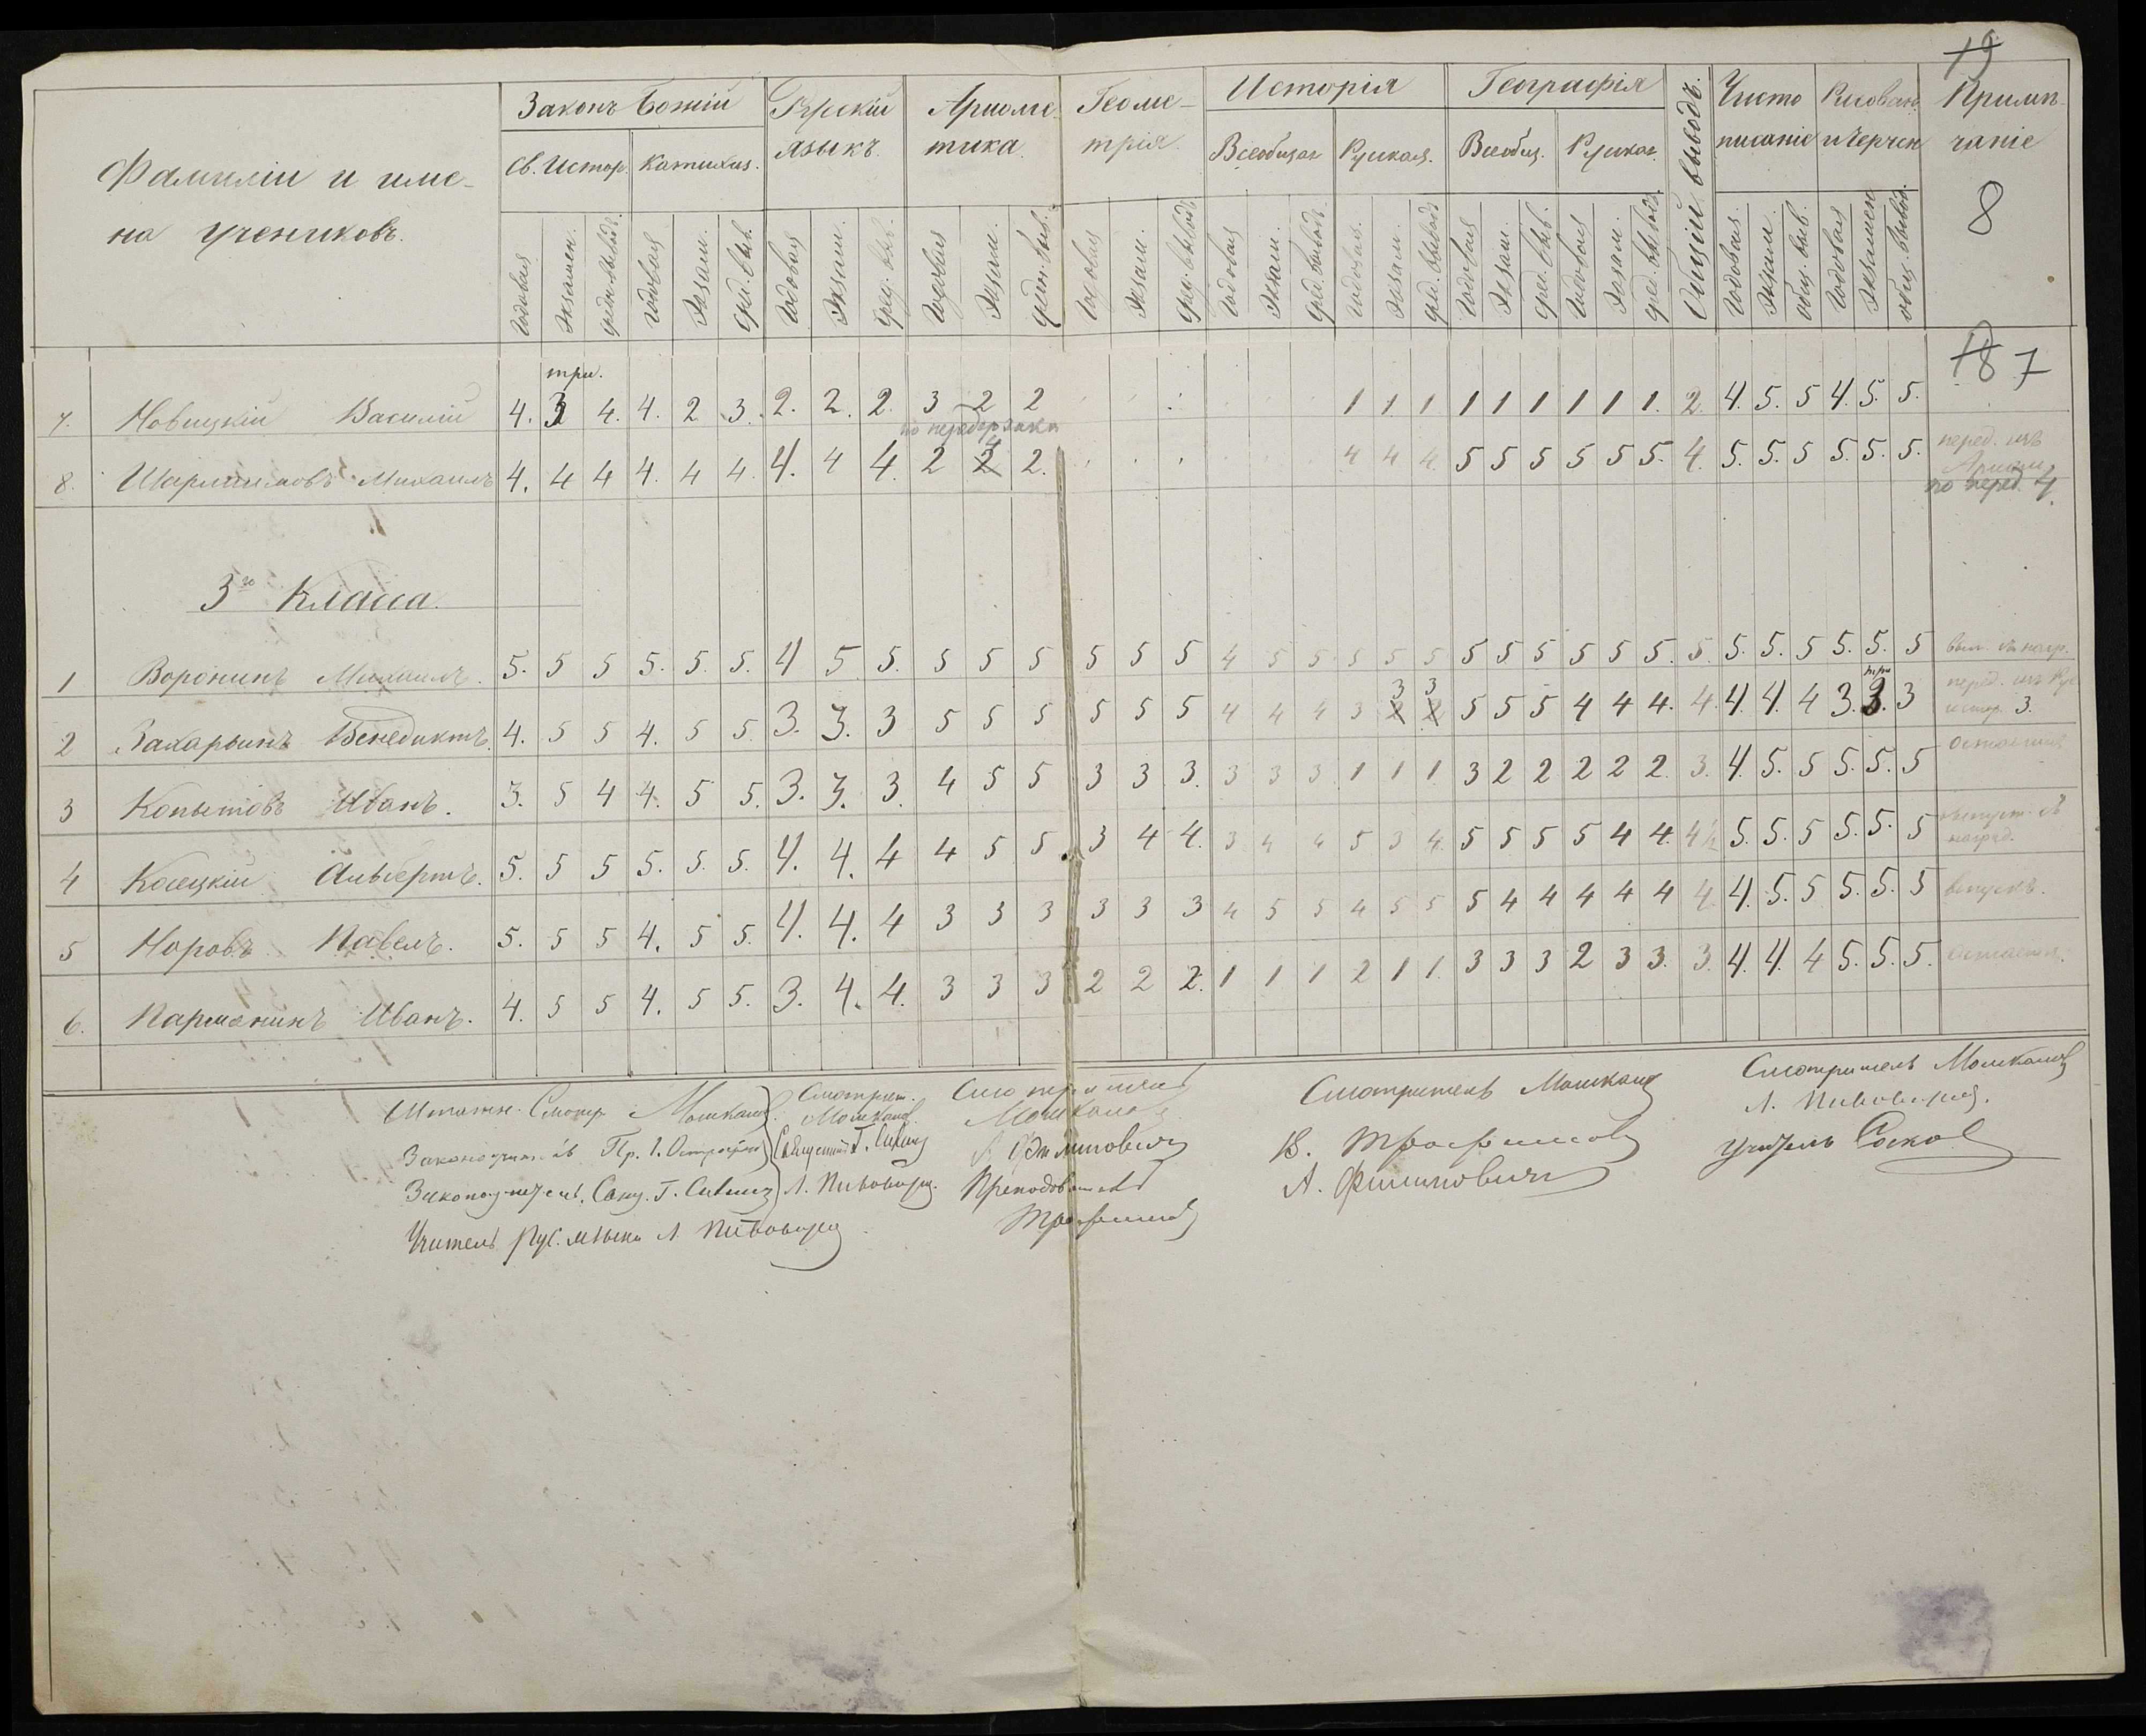 19
Фамиліи и име-
на учениковъ.
Законъ Божій
Русскій
языкъ.
Ариѳме-
тика.
Геоме-
трія.
Исторія
Географія
Общій выводъ.
Чисто
писаніе
Рисован.
и Черчен
Примѣ-
чаніе
8
Св. Истор. Катихиз. Всеобщая Русская. Всеобщ. Русская.
Годовая Экзамен. Средн. выводъ. Годовая Экзам. Сред. выв. Годовая Экзам. Сред. выв. Годовая Экзам. Средн. выв. Годовая Экзам. Сред. выводъ Годовая Экзам. Сред. выводъ. Годовая. Экзам. Сред. выводъ Годовая Экзам. Сред. выв. Годовая Экзам. Сред. выводъ. Годовая Экзам. Общ. выв. Годовая Экзамен Общ. вывод.
18 7
три.
7. Новицкій Василій 4. 3 4. 4. 2 3. 2. 2. 2. 3 2 2 1 1. 1 1 1 1 1 1 1. 2. 4. 5. 5 4. 5. 5.
по передержки
8. Михаилъ 4. 4 4 4. 4 4. 4. 4 4. 2 2 4 2. 4 4 4. 5 5 5 5 5 5. 4. 5. 5. 5 5. 5. 5. перед. изъ
Ариѳм.
по перед. 4.
3го Класса.
1 Воронинъ Михаилъ. 5. 5 5 5. 5. 5. 4 5 5. 5 5 5 5 5 5 4 5 5 5 5 5 5 5 5 5 5 5. 5. 5. 5. 5 5. 5. 5 вып. съ нагр.
три
2 Захарьинъ Бенедиктъ. 4. 5 5 4. 5 5. 3. 3. 3 5 5 5 5 5 5 4 4 4 3 2 3 2 3 5 5 5 4 4 4. 4. 4. 4. 4 3. 3. 3 перед. изъ Рус
истор. 3.
3 Копытовъ Иванъ. 3. 5 4 4. 5 5. 3. 3. 3. 4 5 5 3 3 3. 3 3 3. 1 1 1 3 2 2 2 2 2. 3. 4. 5. 5 5. 5. 5
4 Косецкій Альбертъ. 5. 5 5 5. 5. 5. 4. 4. 4 4 5 5. 3 4 4. 3 4 4 5 3 4. 5 5 5 5 4 4. 4½ 5. 5. 5 5. 5. 5 выпуст. съ
наград.
5 Норовъ Павелъ. 5. 5 5 4. 5 5. 4. 4. 4 3 3 3 3 3 3 4 5 5 4 5 5 5 4 4 4 4 4 4. 4. 5. 5 5. 5. 5 выпускъ.
6. Парманинъ Иванъ. 4. 5 5 4. 5 5. 3. 4. 4. 3 3 3 2 2 2. 1 1 1 2 1 1. 3 3 3 2 3 3. 3. 4. 4. 4 5. 5. 5.
Штатн. Смотр. Мошкал
Смотрит.
Смотритель
Смотритель
Смотритель
Л. Пивоваръ.
А. Филиповичъ
В. Трофимов
А. Филиповичъ
Учитель
Законоучитель
Учитель Рус. языка Л. Пивоваръ